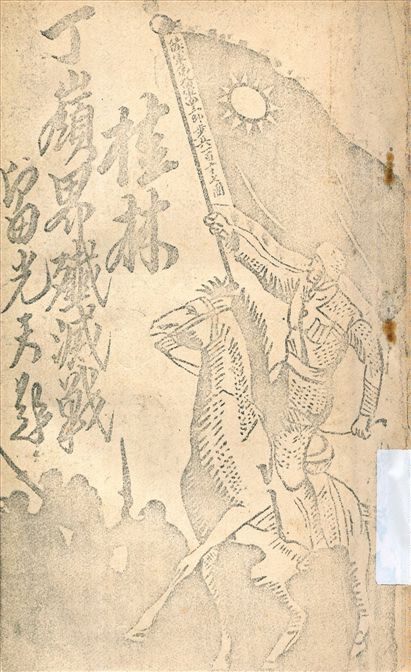 桂林
丁嶺界殲滅戰
留光夫題